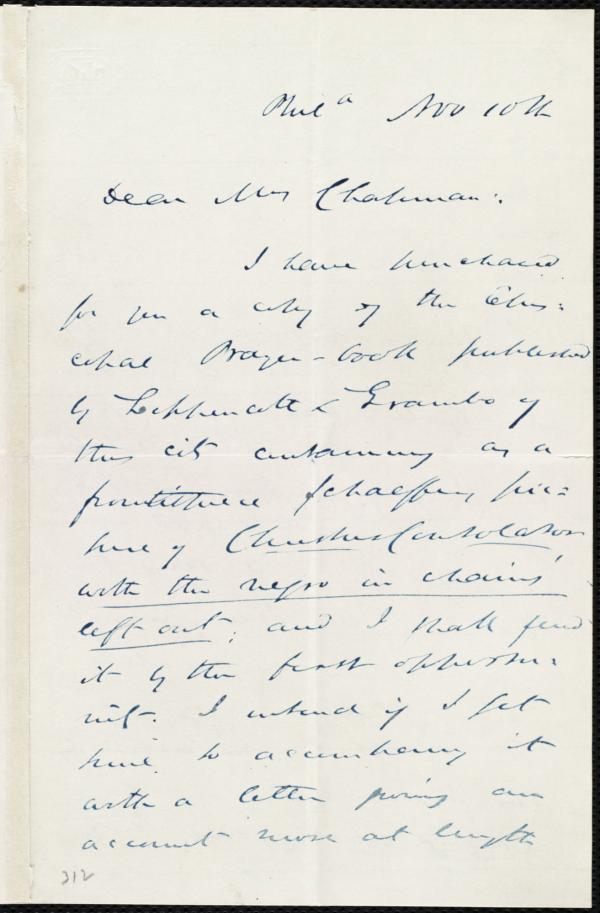 Phil a Nov 10th
Dear Mrs Chapman:
I have purchased
for you a copy of the Epis:
copal Prayer-book published
by Lippencott & Grambo of
this city containing as a
frontispiece Schaeffer's pic:
ture of Christus Consolator
with the negro in chains
left out; and I shall send
it by the first opportu:
nity. I intend if I get
time to accompany it
with a letter giving an
account more at length
312